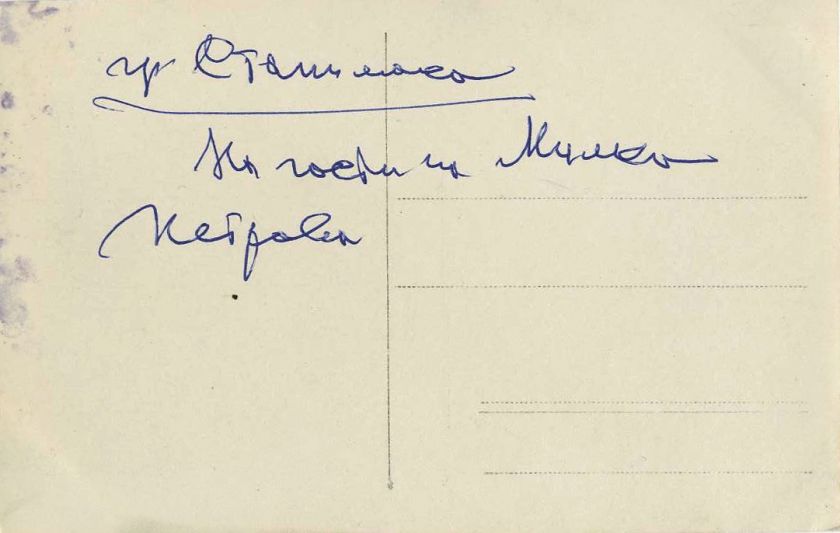 гр Станимака
На гости на Милка
Петрова